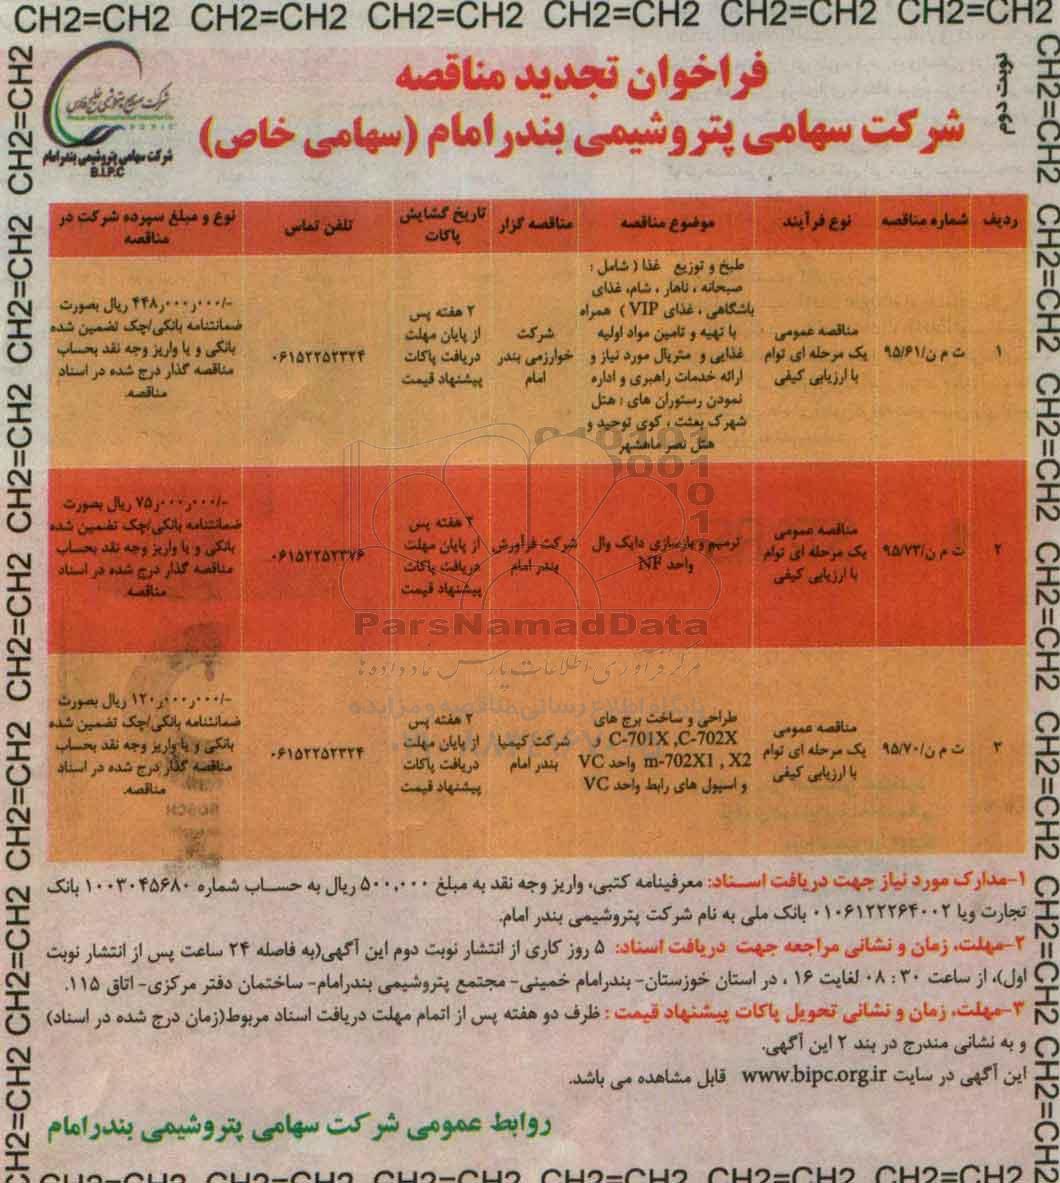 CH2=CH2 CH2=CH2 CH2=CH2 CH2=CH2 CH2=CH2 CH2=CH2
نوبت دوم
فراخوان تجدید مناقصه
شرکت سهامی پتروشیمی بندر امام (سهامی خاص)
شرکت صنایع پتروشیمی خلیج فارس
شرکت سهامی پتروشیمی بندر امام
B.I.P.C
ردیف شماره مناقصه نوع فرآیند موضوع مناقصه مناقصه گزار تاریخ گشایش پاکات تلفن تماس نوع و مبلغ سپرده شرکت در مناقصه
۱
ت م ن/۹۵/۶۱
مناقصه عمومی
یک مرحله ای توام
با ارزیابی کیفی
طبخ و توزیع غذا ( شامل :
صبحانه ، ناهار ، شام، غذای
باشگاهی ، غذای VIP ) همراه
با تهیه و تامین مواد اولیه
غذایی و متریال مورد نیاز و
ارائه خدمات راهبری و اداره
نمودن رستوران های : هتل
شهرک بعثت ، کوی توحید و
هتل نصر ماهشهر
شرکت
خوارزمی بندر
امام
۲ هفته پس
از پایان مهلت
دریافت پاکات
پیشنهاد قیمت
۰۶۱۵۲۲۵۲۳۲۴
۴۴۸ر۰۰۰ر۰۰۰/- ریال بصورت
ضمانتنامه بانکی/چک تضمین شده
بانکی و یا واریز وجه نقد بحساب
مناقصه گذار درج شده در اسناد
مناقصه.
۲
ت م ن/۹۵/۷۳
مناقصه عمومی
یک مرحله ای توام
با ارزیابی کیفی
ترمیم و بازسازی دایک وال
واحد NF
شرکت فرآورش
بندر امام
۲ هفته پس
از پایان مهلت
دریافت پاکات
پیشنهاد قیمت
۰۶۱۵۲۲۵۲۳۷۶
۷۵ر۰۰۰ر۰۰۰/- ریال بصورت
ضمانتنامه بانکی/چک تضمین شده
بانکی و یا واریز وجه نقد بحساب
مناقصه گذار درج شده در اسناد
مناقصه.
۳
ت م ن/۹۵/۷۰
مناقصه عمومی
یک مرحله ای توام
با ارزیابی کیفی
طراحی و ساخت برج های
C-701X ,C-702X و
m-702X1 , X2 واحد VC
و اسپول های رابط واحد VC
شرکت کیمیا
بندر امام
۲ هفته پس
از پایان مهلت
دریافت پاکات
پیشنهاد قیمت
۰۶۱۵۲۲۵۲۳۲۴
۱۲۰ر۰۰۰ر۰۰۰/- ریال بصورت
ضمانتنامه بانکی/چک تضمین شده
بانکی و یا واریز وجه نقد بحساب
مناقصه گذار درج شده در اسناد
مناقصه.
ParsNamadData
مرکز فرآوری اطلاعات پارس نماد داده ها
پایگاه اطلاع رسانی مناقصه و مزایده
۱-مدارک مورد نیاز جهت دریافت اسـناد: معرفینامه کتبی، واریز وجه نقد به مبلغ ۵۰۰,۰۰۰ ریال به حساب شماره ۱۰۰۳۰۴۵۶۸۰ بانک
تجارت ویا ۰۱۰۶۱۲۲۲۶۴۰۰۲ بانک ملی به نام شرکت پتروشیمی بندر امام.
۲-مهلت، زمان و نشانی مراجعه جهت دریافت اسناد: ۵ روز کاری از انتشار نوبت دوم این آگهی(به فاصله ۲۴ ساعت پس از انتشار نوبت
اول)، از ساعت ۳۰ : ۰۸ لغایت ۱۶ ، در استان خوزستان- بندرامام خمینی- مجتمع پتروشیمی بندرامام- ساختمان دفتر مرکزی- اتاق ۱۱۵.
۳-مهلت، زمان و نشانی تحویل پاکات پیشنهاد قیمت : ظرف دو هفته پس از اتمام مهلت دریافت اسناد مربوط(زمان درج شده در اسناد)
و به نشانی مندرج در بند ۲ این آگهی.
این آگهی در سایت www.bipc.org.ir قابل مشاهده می باشد.
روابط عمومی شرکت سهامی پتروشیمی بندرامام
CH2=CH2 CH2=CH2 CH2=CH2 CH2=CH2 CH2=CH2 CH2=CH2